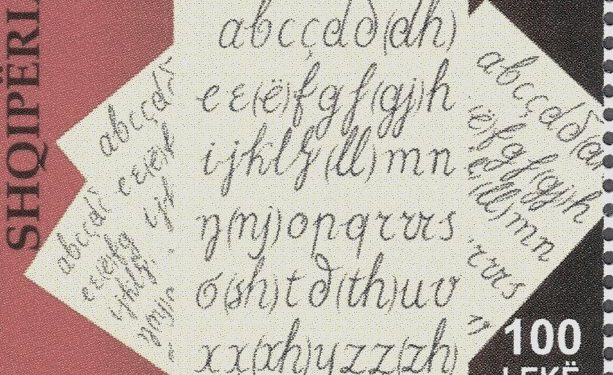 SHQIPËRIA
abcçdð(dh)
eε(ë)fgƒ(gj)h
ijklꝉ(ll)mn
ŋ(nj)opqrrrs
σ(sh)tð(th)uv
xx(xh)yzz(zh)
abcçdð
eε(ë)f
ij
abcçdð
eε(ë)fg
ijklꝉ
abcçdð(d
ë)fgƒ(gj)h
(ll)mn
rrrs
100
LEKË